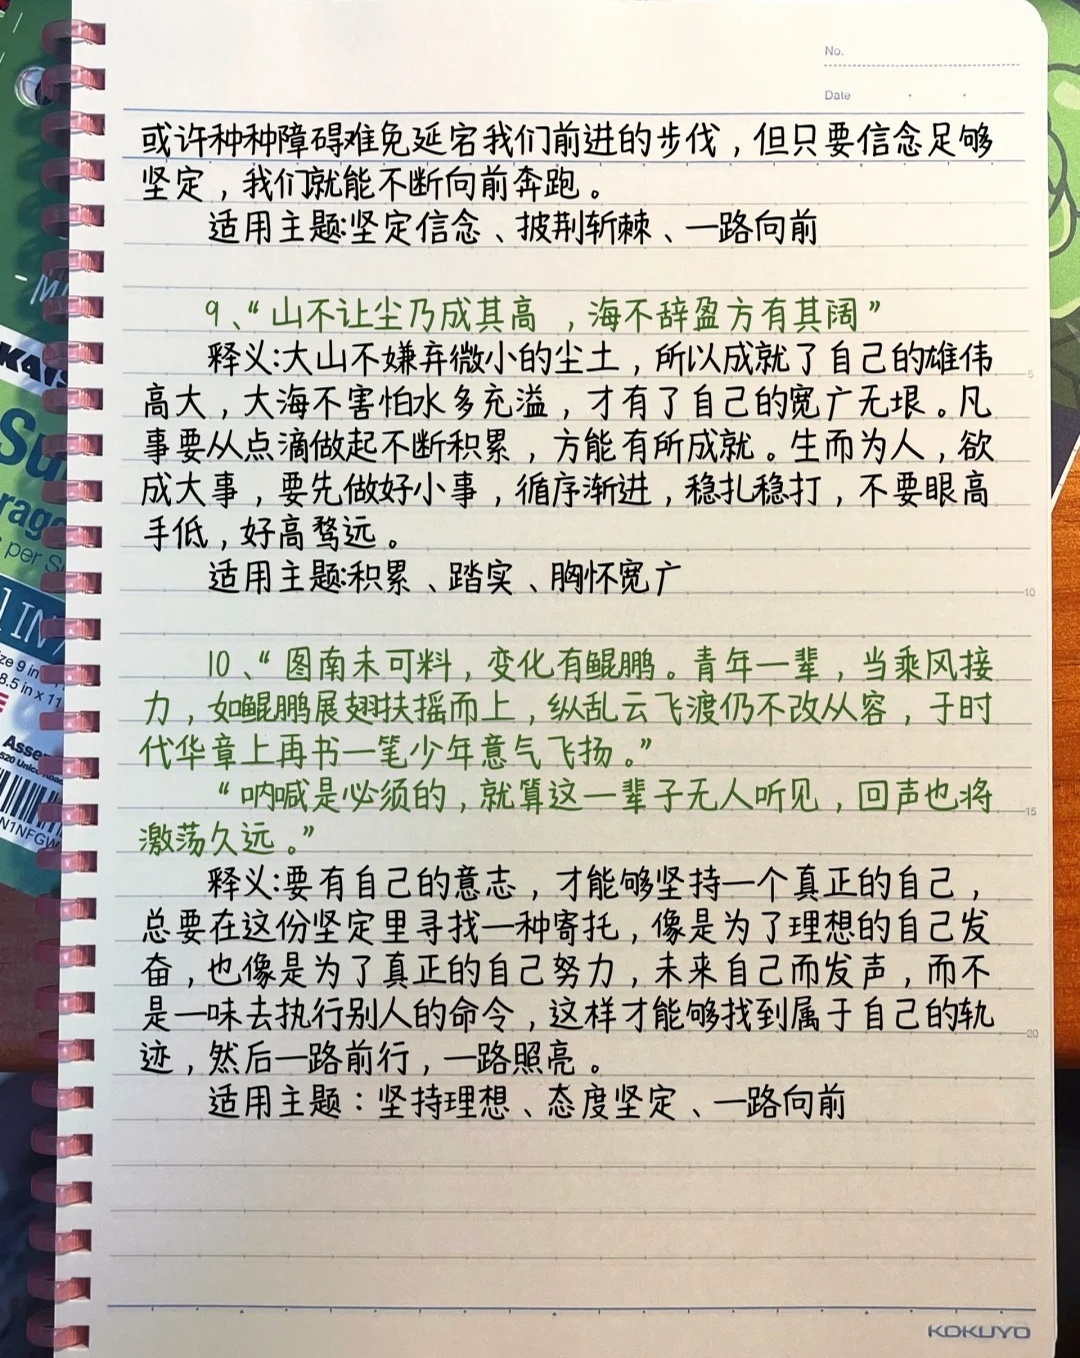 No.
Date
或许种种障碍难免延宕我们前进的步伐，但只要信念足够
坚定，我们就能不断向前奔跑。
适用主题:坚定信念、披荆斩棘、一路向前
9、“山不让尘乃成其高，海不辞盈方有其阔”
释义:大山不嫌弃微小的尘土，所以成就了自己的雄伟
5
高大，大海不害怕水多充溢，才有了自己的宽广无垠。凡
事要从点滴做起不断积累，方能有所成就。生而为人，欲
成大事，要先做好小事，循序渐进，稳扎稳打，不要眼高
手低，好高骛远。
适用主题:积累、踏实、胸怀宽广
10
10、“图南未可料，变化有鲲鹏。青年一辈，当乘风接
力，如鲲鹏展翅扶摇而上，纵乱云飞渡仍不改从容，于时
代华章上再书一笔少年意气飞扬。”
“呐喊是必须的，就算这一辈子无人听见，回声也将
15
激荡久远。”
释义:要有自己的意志，才能够坚持一个真正的自己，
总要在这份坚定里寻找一种寄托，像是为了理想的自己发
奋，也像是为了真正的自己努力，未来自己而发声，而不
是一味去执行别人的命令，这样才能够找到属于自己的轨
20
迹，然后一路前行，一路照亮。
适用主题：坚持理想、态度坚定、一路向前
KOKUYO
Su
per
IN
ze 9 in
8.5 in x 11
Asse
N1NFGW